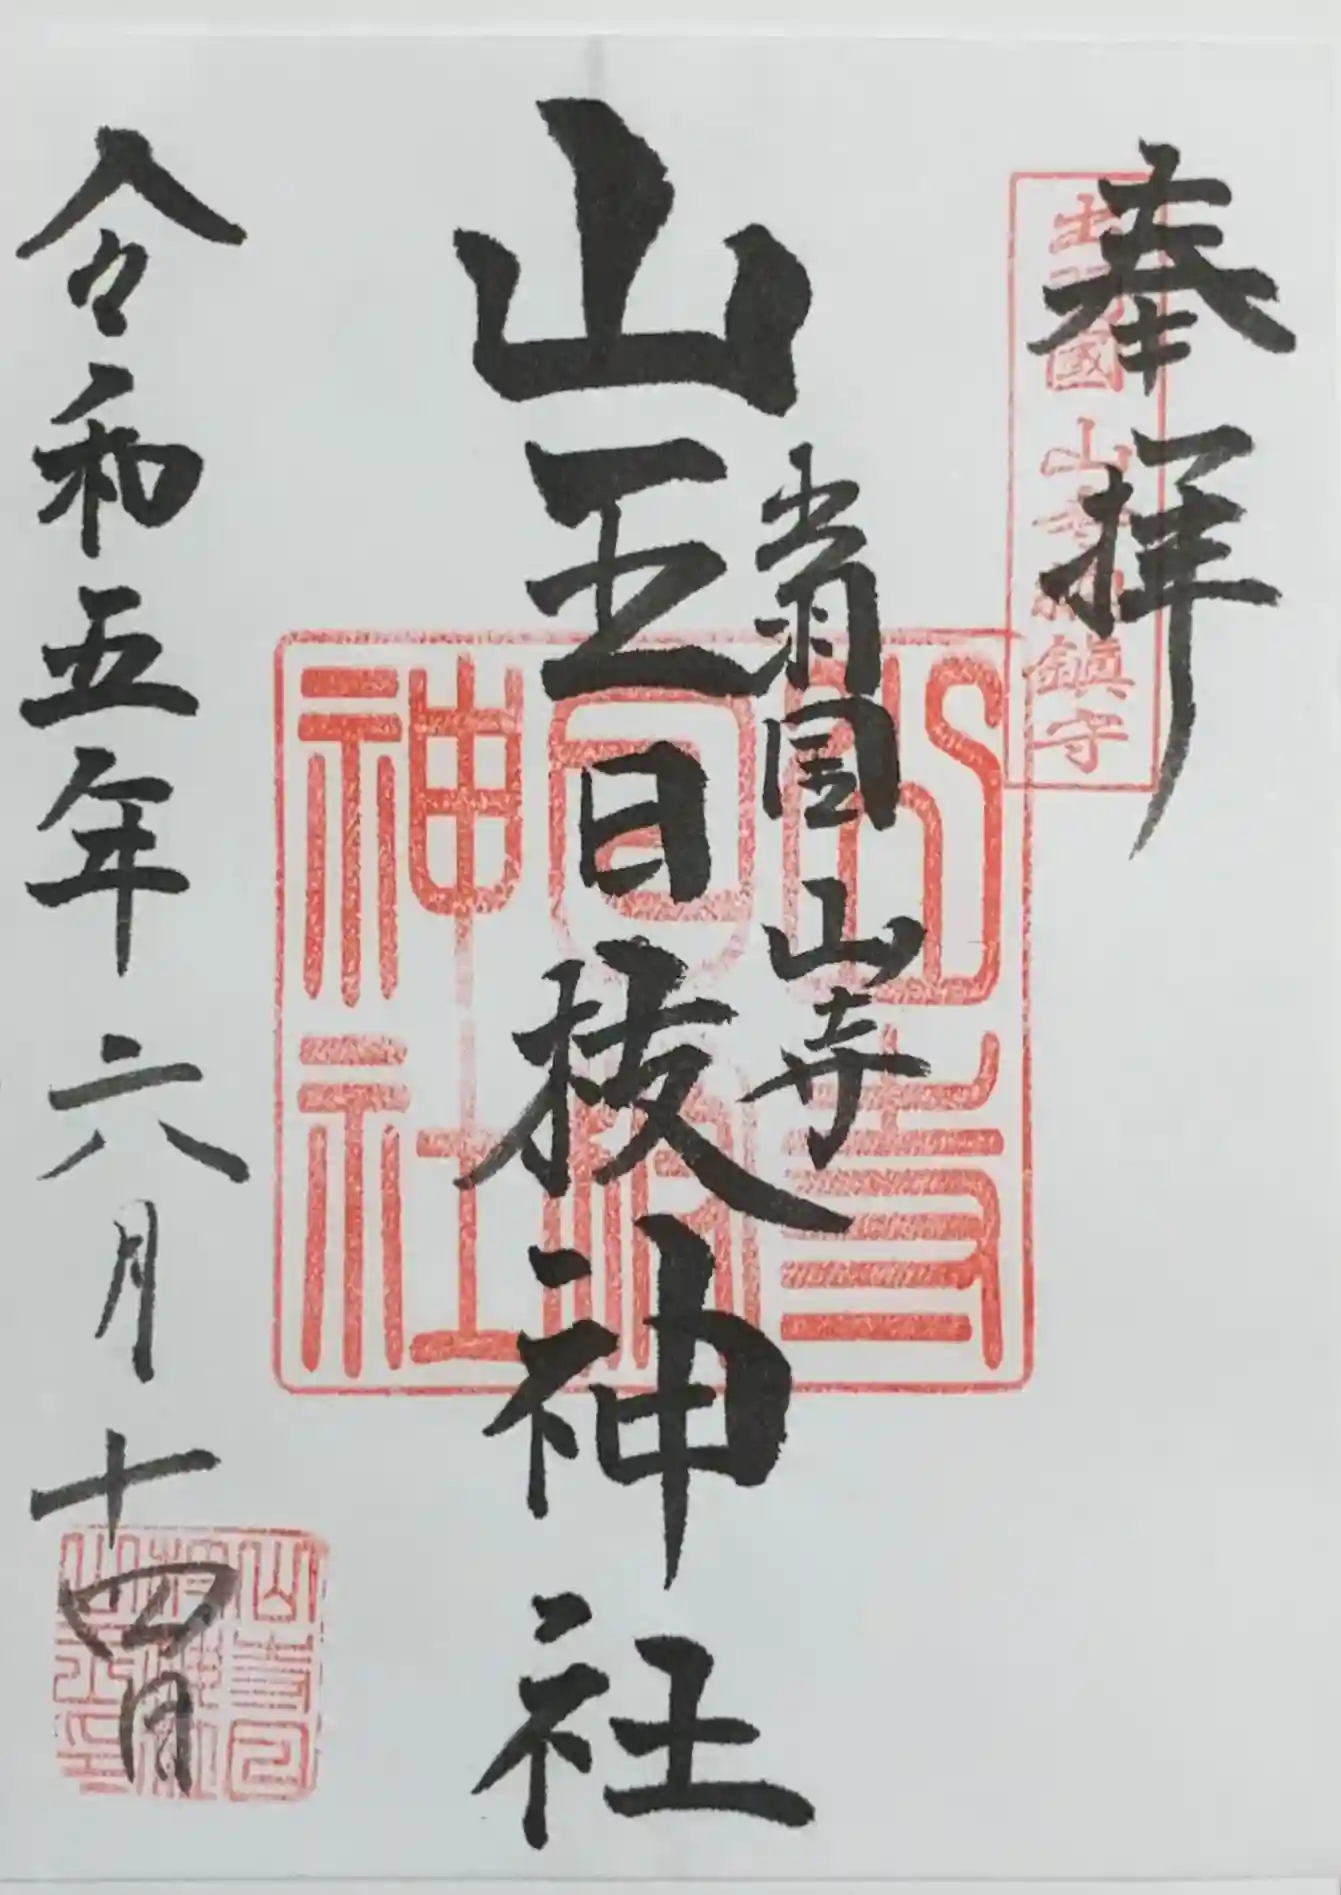 奉拝
出羽國山寺鎮守
出羽国 山寺
山王日枝神社
山寺
日枝
神社
令和五年六月十四日